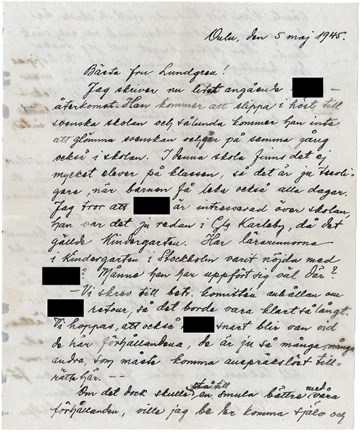 Oulu, den 5 maj 1945.
Bästa fru Lundgren!
Jag skriver nu litet angående
återkomst. Han kommer att slippa i höst till
svenska skolan och sålunda kommer han inte
att glömma svenskan och går på samma gång
också i skolan. I denna skola finns det ej
mycket elever på klassen, så det är ju trevli-
gare, när barnen få leka också alla dagar.
Jag tror att är intresserad över skolan,
han var det ju redan i Gla Karleby, då det
gällde Kindergarten. Har lärarinnorna
i Kindergarten i Stockholm varit nöjda med
? Månne han har uppfört sig väl där?
– Vi skrev till betr. komitten anhållan om
retour, så det borde vara klart så långt.
Vi hoppas, att också snart blir van vid
de här förhållandena, de är ju så många många
andra, som måste komma anspråkslöst till-
rätta här. —
Om det dock skulle stå till en smula bättre med våra
förhållanden, ville jag be er komma själv och